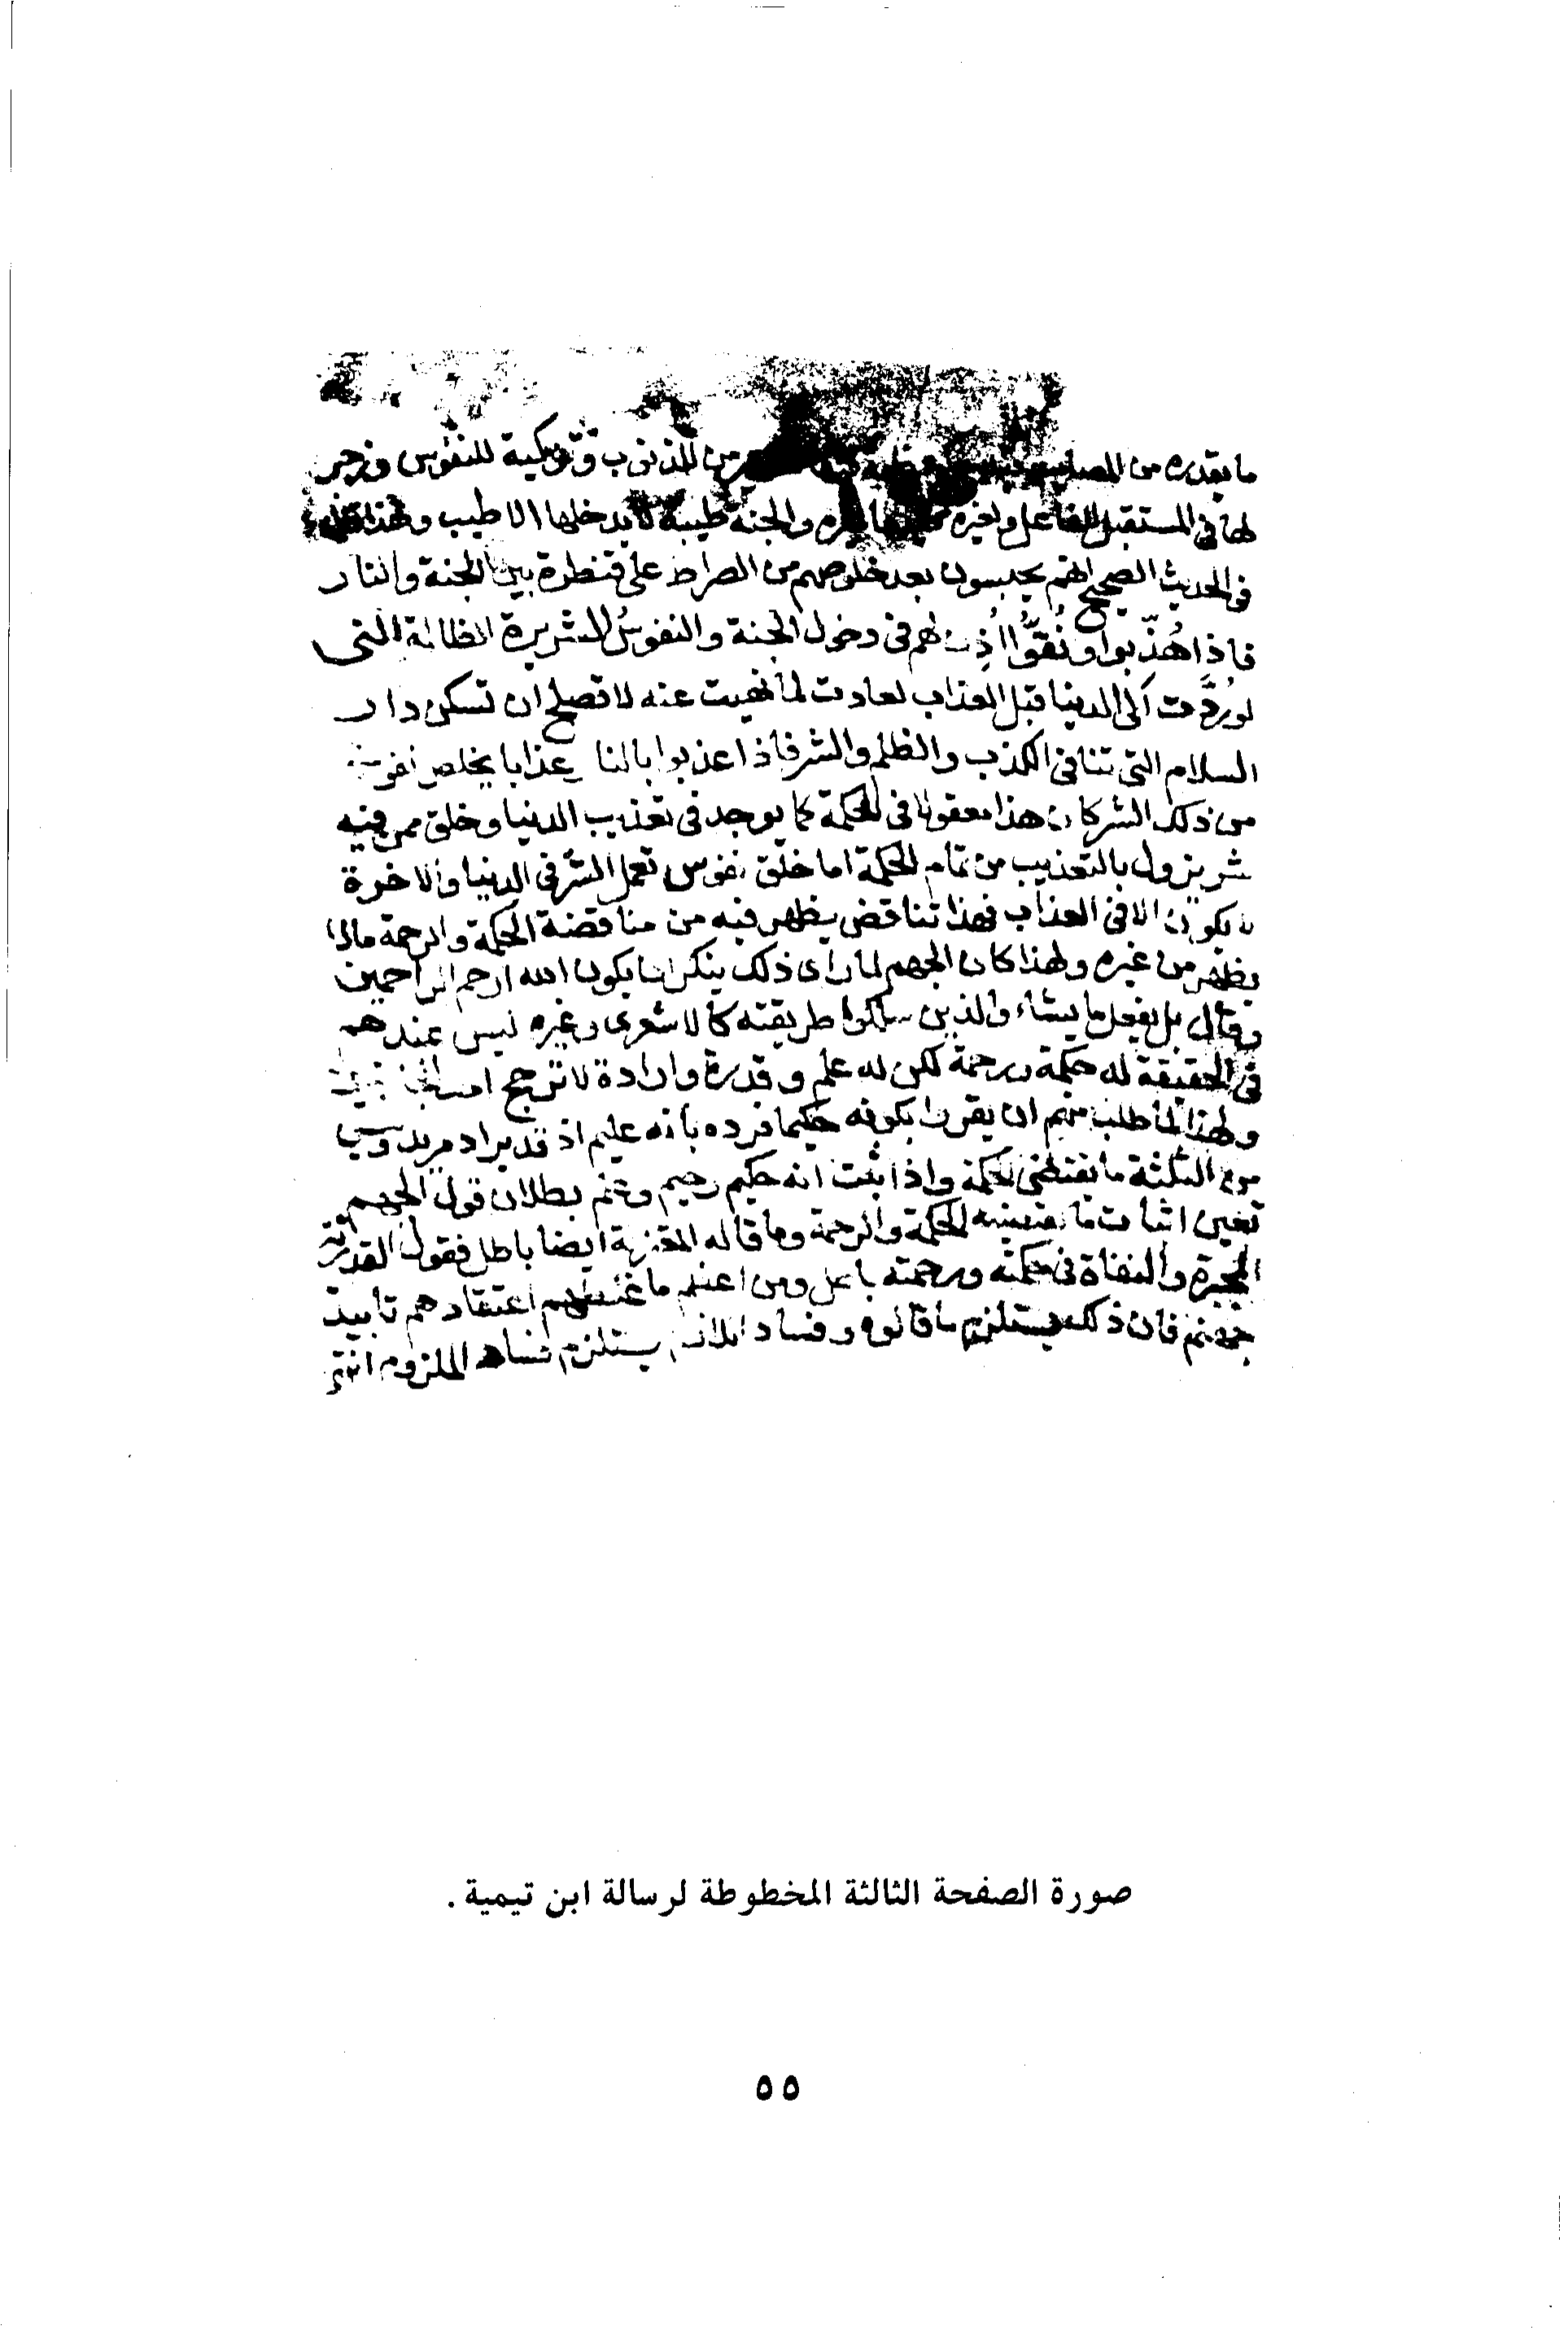 ما يقدره من المصايب من الذنوب وتزكية للنفوس وزجر
لها في المستقبل للفاعل ولغيره والجنة طيبة لا يدخلها الا طيب ولهذا
في الحديث الصحيح انهم يحبسون بعد خلوصهم من الصراط على قنطرة بين الجنة والنار
فاذا هُذّبوا ونُقّوا اُذِن لهم في دخول الجنة والنفوسُ الشريرة الظالمة التى
لو رُدَّت الى الدنيا قبل العذاب لعادت لما نهيت عنه لا تصلح ان تسكن دار
السلام التى تنافى الكذب والظلم والشر فاذا عذبوا بالنا عذابا يخلص
من ذلك الشر كان هذا معقولا في الحكمة كما يوجد في تعذيب الدنيا وخلق من فيه
شر يزول بالتعذيب من تمام الحكمة اما خلق نفوس تعمل الشر في الدنيا والاخرة
لا يكون الا في العذاب فهذا تناقض يظهر فيه من مناقضة الحكمة والرحمة ما لا
يظهر من غيره ولهذا كان الجهم لما راى ذلك ينكر ان يكون الله ارحم الراحمين
وقال بل يفعل ما يشاء والذين سلكوا طريقته كالاشعرى وغيره ليس عندهم
في الحقيقة له حكمة ورحمة لكن له علم وقدرة وارادة لا ترجح
ولهذا لما طلب منهم ان يقروا بكونه حكيما فرده بانه عليم اذ قدير اد مريد وليس
من الثلثة ما يقتضى الحكمة واذا ثبت انه حكيم رحيم وعلم بطلان قول الجهم
تعين اثبات ما تقتضيه الحكمة والرحمة وما قاله المعتزلة ايضا باطل فقول القدرية
المجبرة والنفاة في حكمته ورحمته باطل ومن اعظم ما غلطهم اعتقادهم تابيد
جهنم فان ذلك يستلزم ما قالوه وفساد اللازم يستلزم فساد الملزوم
صورة الصفحة الثالثة المخطوطة لرسالة ابن تيمية .
٥٥